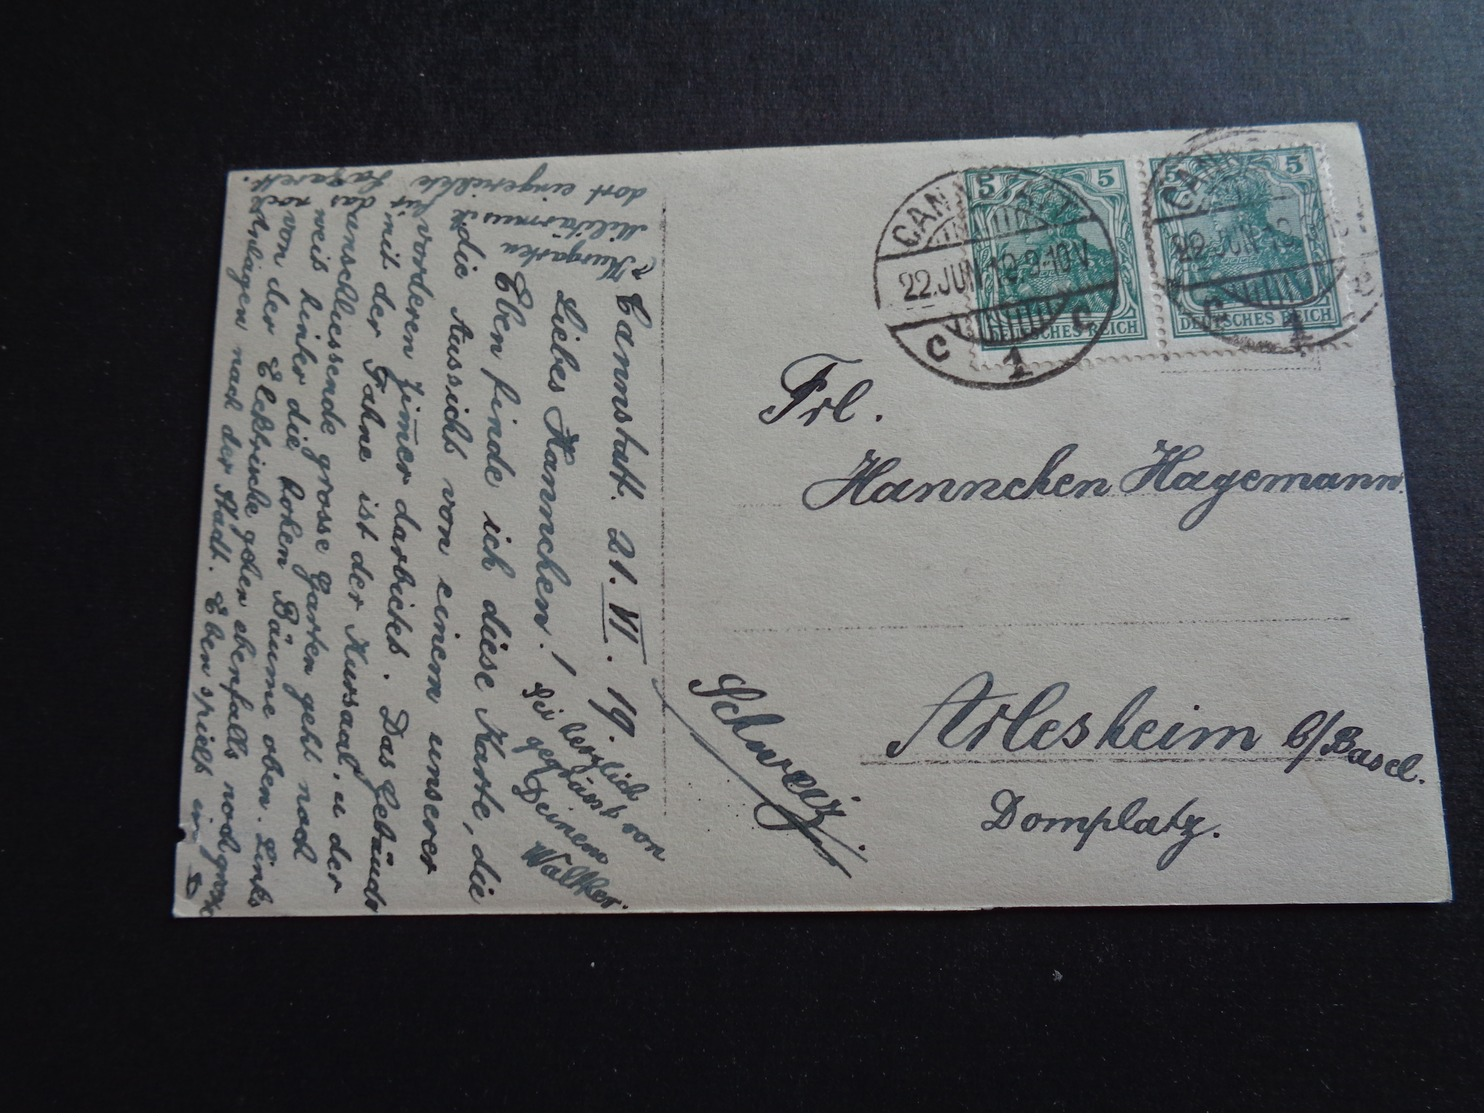 Cannstatt. 21. VI. 19.
Liebes Hannchen!
Eben finde ich diese Karte, die
die Aussicht von einem unserer
vorderen Zimer darbietet. Das Gebäude
mit der Fahne ist der Kursaal, u der
anschliessende grosse Garten geht noch
weit hinter die hohen Bäume oben. Links
von der Elektrische gehen ebenfalls noch grosse
Anlagen nach der Stadt. Eben spielt im
Kurgarten
Militärmusik
für das
dort eingerichtete Lazarett.
Sei herzlich
gegrüsst von
Deinem
Walther.
CANNSTATT
22.JUN.19.9-10V.
C 1 C
5 5
DEUTSCHES REICH
5 5
DEUTSCHES REICH
22.JUN.19
1
Frl.
Hannchen Hagemann.
Arlesheim b/Basel.
Domplatz.
Schweiz